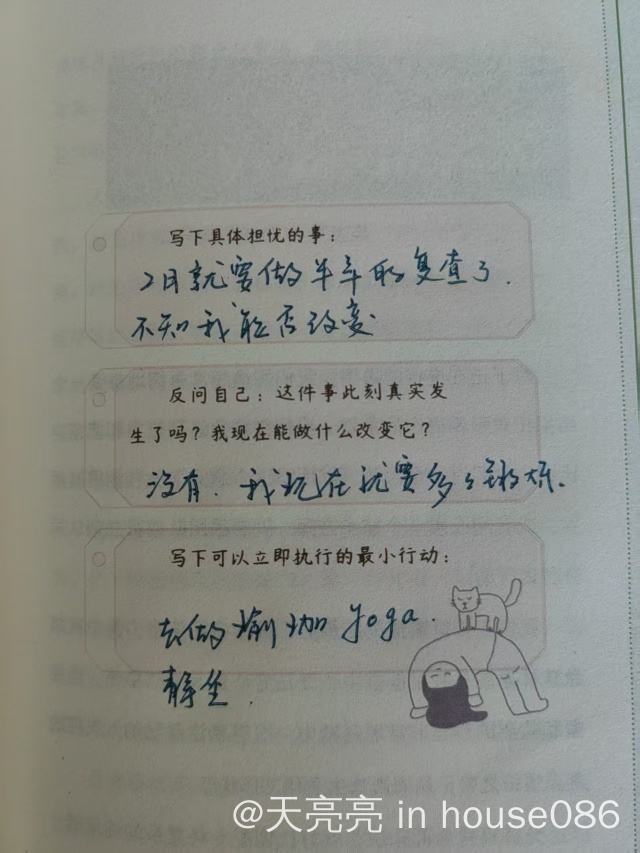 写下具体担忧的事：
2月就要做半年的复查了.
不知我能否改变
反问自己：这件事此刻真实发
生了吗？我现在能做什么改变它？
没有. 我现在就要多多锻炼.
写下可以立即执行的最小行动：
去做瑜珈 yoga.
静坐.
@天亮亮 in house086